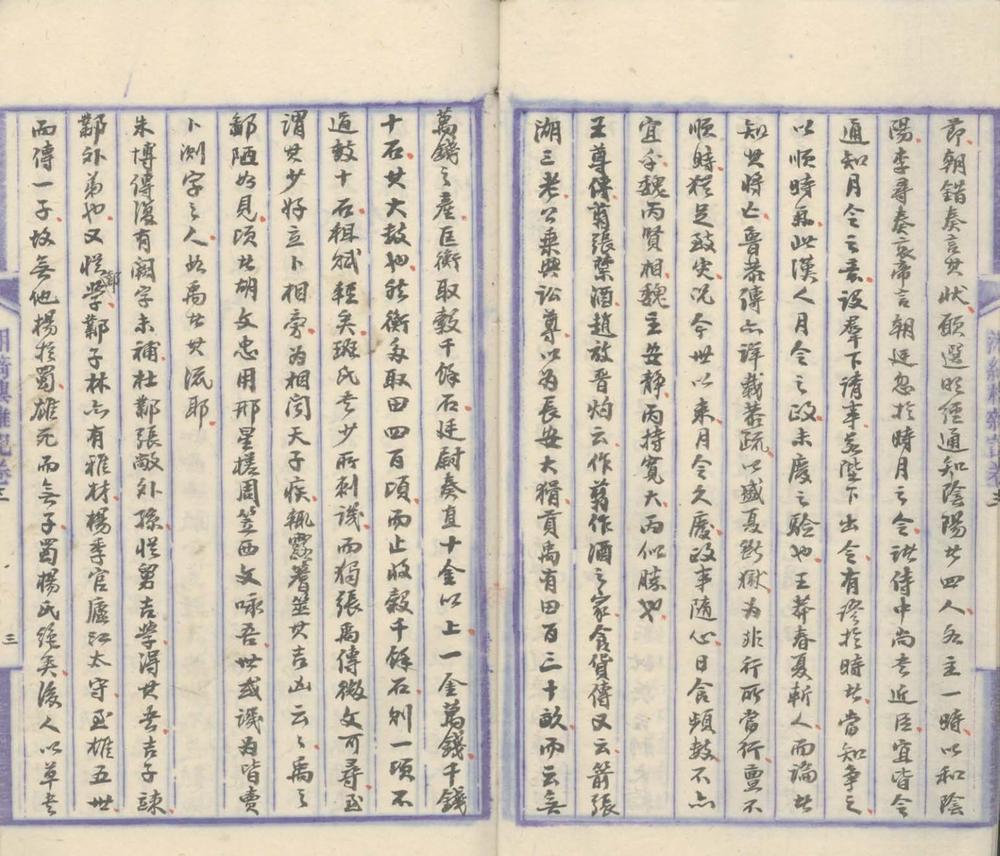 節朝錯奏言其狀願選明經通知陰陽者四人各主一時以和陰
陽季尋奏哀帝言朝廷忽於時月之令諸侍中尚書近臣宜皆令
通知月令之意設羣下請事若陛下出令有謬於時者當知爭之
以順時氣此漢人月令之政未廢之驗也王莽春夏斬人而論者
知其將亡魯恭傳亦詳載恭疏以盛夏斷獄為非行所當行亶不
順時猶足致灾況今世以來月令久廢政事隨心日食頻數不亦
宜乎魏丙賢相魏主安靜丙持寬大丙似勝也
王尊傳翦張禁酒趙放晋灼云作翦作酒之家食貨傳又云箭張
湖三老公乘興訟尊以為長安大猾貢禹有田百三十畝而云無
萬錢之產匡衡取穀千餘石廷尉奏直十金以上一金萬錢千錢
十石其大數也然衡多取田四百頃而止收穀千餘石則一頃不
過數十石租賦輕矣班氏書少所刺譏而獨張禹傳微文可尋至
謂其少好立卜相旁為相問天子疾輒露蓍筮其吉凶云云禹之
鄙陋如見頃者胡文忠用邢星槎周笠西文咏吾世或譏為皆賣
卜測字之人如禹者其流耶
朱博傳復有闕字未補杜鄴張敞外孫從舅吉學得其書吉子竦
鄴外弟也又從鄴學鄴子林亦有雅材楊季官廬江太守至雄五世
而傳一子故無他楊於蜀雄死而無子蜀楊氏絕矣後人以草書
湘綺樓雜記卷三
三